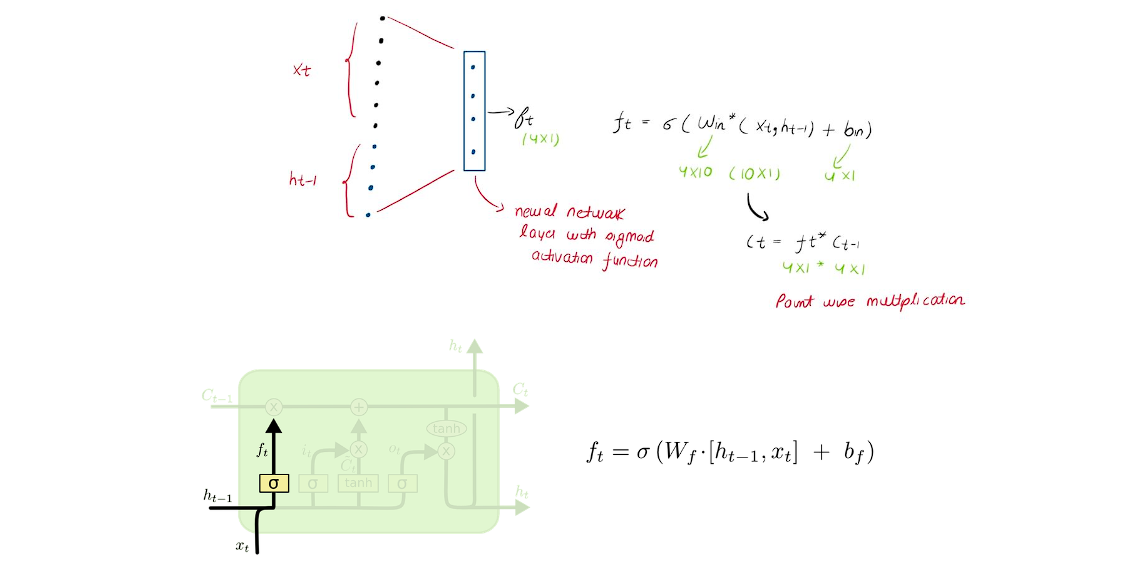 xt
ht-1
ft
(4x1)
neural network
layer with sigmoid
activation function
ft = σ ( Win* ( xt, ht-1) + bin)
4x10 (10x1) 4x1
Ct = ft* Ct-1
4x1 * 4x1
Point wise multiplication
h_t
C_{t-1} × + C_t
tanh
f_t i_t × C̃_t o_t ×
σ σ tanh σ
h_{t-1} h_t
x_t
f_t = σ (W_f · [h_{t-1}, x_t] + b_f)